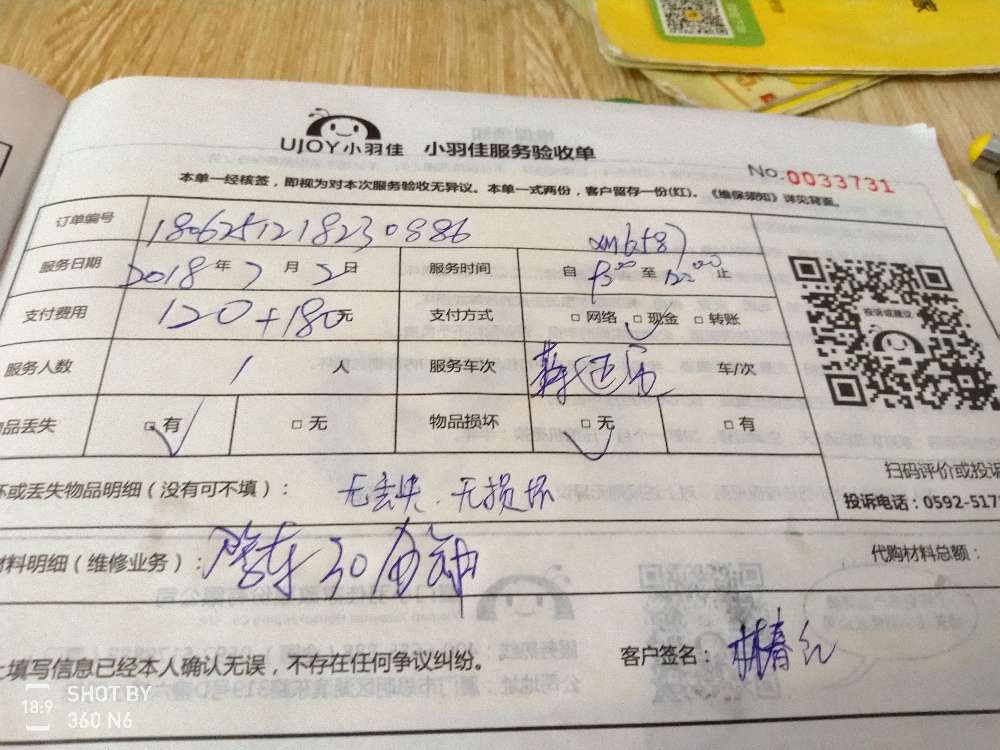 UJOY小羽佳 小羽佳服务验收单
No.0033731
本单一经核签，即视为对本次服务验收无异议。本单一式两份，客户留存一份(红)。《维保须知》详见背面。
订单编号 180625121823 0886
服务日期 2018年7月2日 服务时间 自 至 止
支付费用 120+180元 支付方式 □网络 □现金 □转账
投诉或建议
服务人数 1 人 服务车次 车/次
品丢失 □有 □无 物品损坏 □无 □有
扫码评价或投诉
坏或丢失物品明细（没有可不填）： 无丢失 无损坏
投诉电话：0592-517
材料明细（维修业务）： 30
代购材料总额：
上填写信息已经本人确认无误，不存在任何争议纠纷。
客户签名： 林春红
18:9 SHOT BY
360 N6